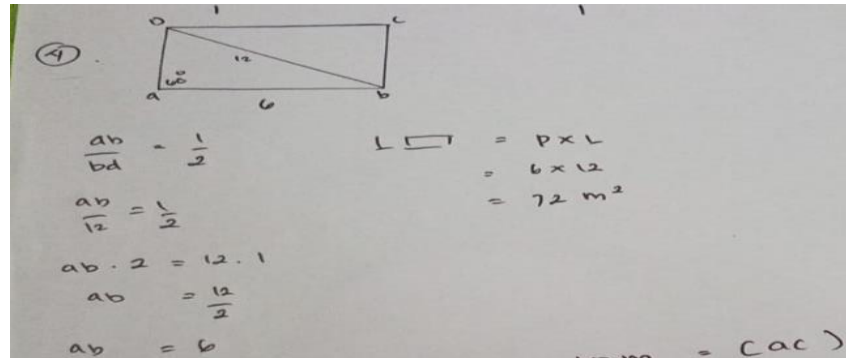 4.
D C
12
60°
a b
6
ab/bd = 1/2
ab/12 = 1/2
ab . 2 = 12 . 1
ab = 12/2
ab = 6
L ▭ = P x L
= 6 x 12
= 72 m²
= (ac)